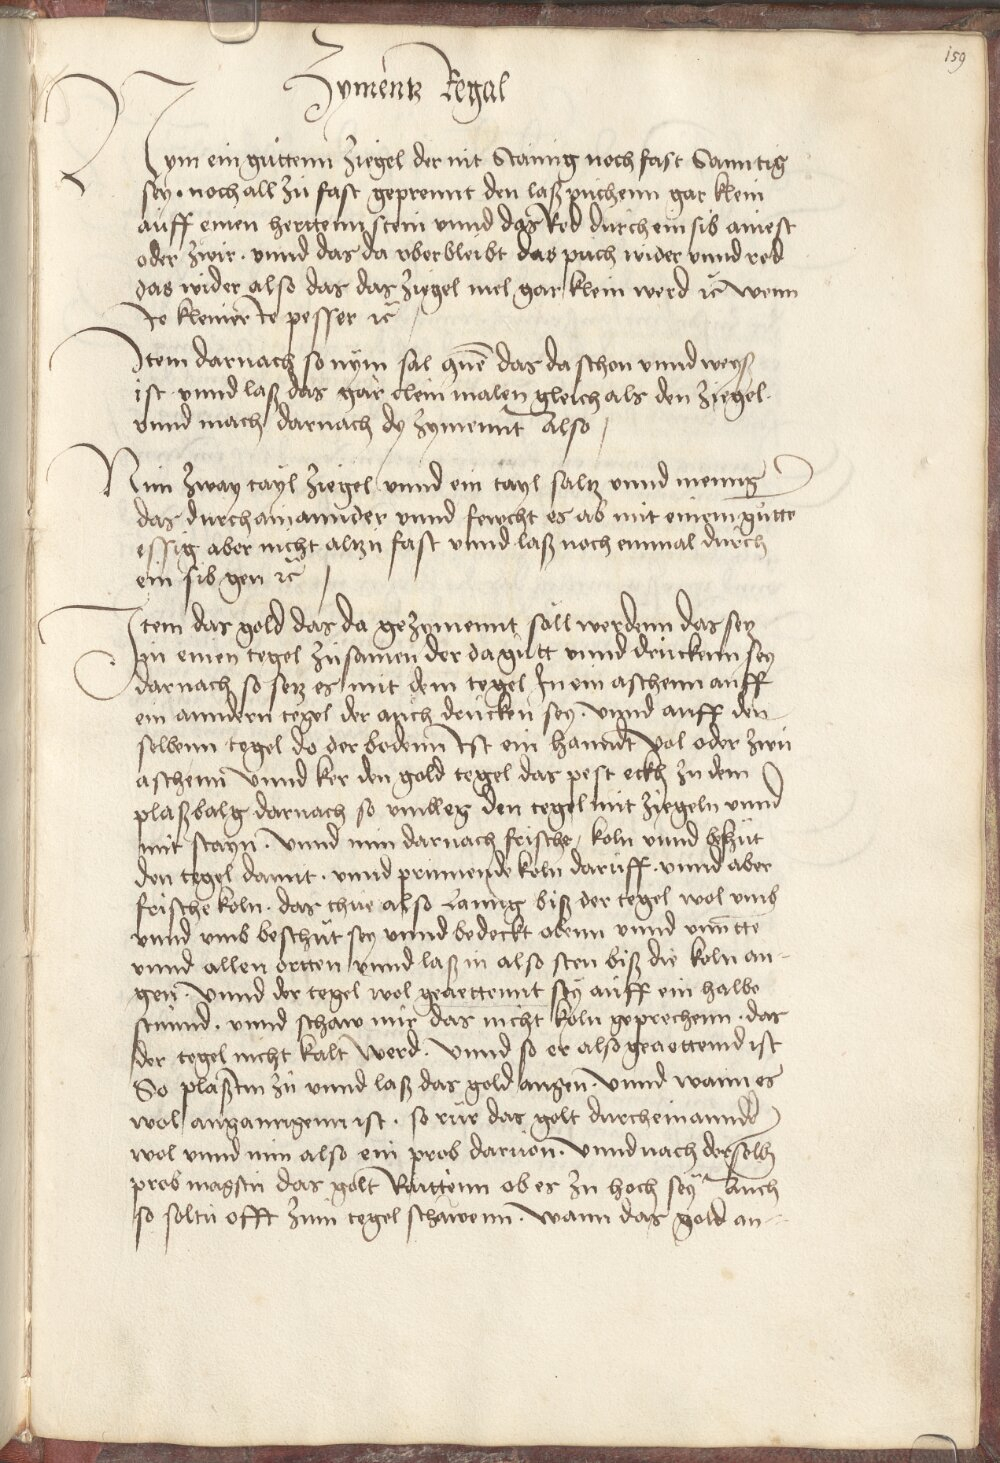 159
Zymentz Regal
Nym ein guttenn Ziegel der nit Stainig noch fast Sanntig
sey · noch all zu fast geprennt den laß puchenn gar klein
auff einen herttenn stein vnnd das Red durch ein sib ainest
oder zwir · vnnd das da vberbleibt das puch wider vnnd red
das wider also das das Ziegel mel gar klein werd rc̄ wenn
Je kleiner Je pesser rc̄
Item darnach so nym sal das da schon vnnd weyß
ist vnnd laß das gar clein malen gleich als den Ziegel ·
vnnd mach darnach dy zymennt Also /
Nim zway tayl Ziegel vnnd ein tayl saltz vnnd meng
das durch ainannder vnnd fewcht es ab mit einem gutte
essig aber nicht altzu fast vnnd laß noch einmal durch
ein sib gen rc̄ /
Item das gold das da gezymennt soll werdenn das setz
In einen tegel zusamen der da gutt vnnd druckenn sey
darnach so setz es mit dem tegel In ein aschenn auff
ein anndern tegel der auch drucken sey · vnnd auff den
selbenn tegel do der bodenn Ist ein hanndt vol oder zwu
aschenn vnnd ker den gold tegel das pest eckh zu dem
plaßbalg darnach so vmbleg den tegel mit ziegeln vnnd
mit stayn · vnnd nim darnach frische koln vnnd beschüt
den tegel damit · vnnd prinnende koln daruff · vnnd aber
frische koln · das thue also Lanng biß der tegel wol vmb
vnnd vmb beschüt sey vnnd bedeckt obenn vnnd vnntte
vnnd allen ortten vnnd laß in also sten biß die koln an-
gen · vnnd der tegel wol geaettennt sey auff ein halbe
stunnd · vnnd schaw nür das nicht koln geprechenn · das
der tegel nicht kalt werd · vnnd so er also geaettennd ist
So plaß Im zu vnnd laß das gold angen · vnnd wann es
wol anganngenn ist · so rür das golt durcheinannd
wol vnnd nim also ein prob daruon · vnnd nach der selb
prob magstu das golt Raittenn ob es zu hoch sey Auch
so soltu offt zum tegel schawenn · wann das gold an-